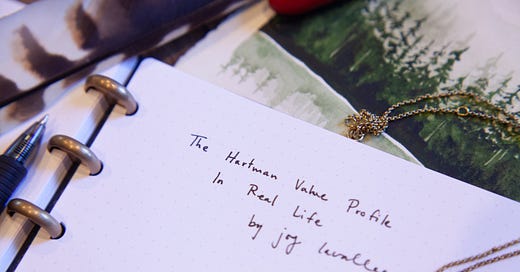 The Hartman Value Profile
In Real Life
by joy lavallee